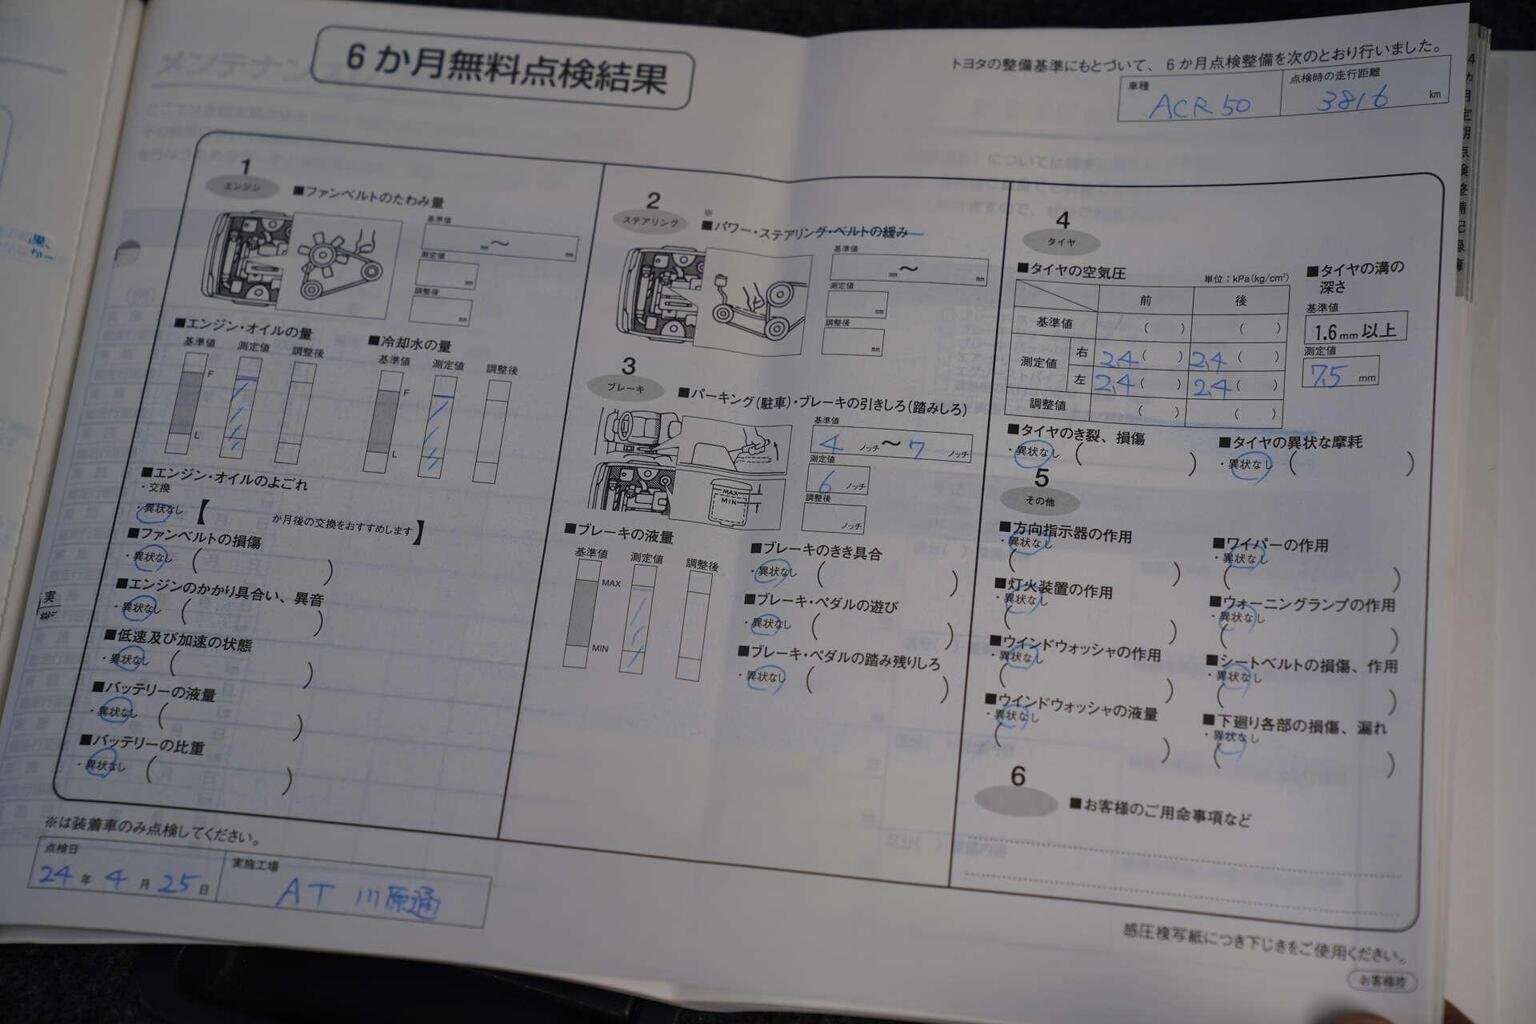 6か月無料点検結果
トヨタの整備基準にもとづいて、6か月点検整備を次のとおり行いました。
車種 ACR50
点検時の走行距離 3816 km
1 エンジン
■ファンベルトのたわみ量
基準値 mm 〜 mm
測定値 mm
調整後 mm
■エンジン・オイルの量
基準値 測定値 調整後
F
L
■冷却水の量
基準値 測定値 調整後
F
L
■エンジン・オイルのよごれ
・交換
・異状なし 【 か月後の交換をおすすめします】
■ファンベルトの損傷
・異状なし ( )
■エンジンのかかり具合い、異音
・異状なし ( )
■低速及び加速の状態
・異状なし ( )
■バッテリーの液量
・異状なし ( )
■バッテリーの比重
・異状なし ( )
2 ステアリング
※
■パワー・ステアリング・ベルトの緩み
基準値 〜 mm
測定値 mm
調整後 mm
3 ブレーキ
■パーキング(駐車)・ブレーキの引きしろ(踏みしろ)
基準値 4 ノッチ 〜 7 ノッチ
測定値 6 ノッチ
調整後 ノッチ
MAX
MIN
■ブレーキの液量
基準値 測定値 調整後
MAX
MIN
■ブレーキのきき具合
・異状なし ( )
■ブレーキ・ペダルの遊び
・異状なし ( )
■ブレーキ・ペダルの踏み残りしろ
・異状なし ( )
4 タイヤ
■タイヤの空気圧 単位:kPa(kg/cm²)
前 後
基準値 ( ) ( )
測定値 右 24 ( ) 24 ( )
左 24 ( ) 24 ( )
調整値 ( ) ( )
■タイヤの溝の
深さ
基準値
1.6mm以上
測定値
7.5 mm
■タイヤのき裂、損傷
・異状なし ( )
■タイヤの異状な摩耗
・異状なし ( )
5 その他
■方向指示器の作用
・異状なし ( )
■灯火装置の作用
・異状なし ( )
■ウインドウォッシャの作用
・異状なし ( )
■ウインドウォッシャの液量
・異状なし ( )
■ワイパーの作用
・異状なし ( )
■ウォーニングランプの作用
・異状なし ( )
■シートベルトの損傷、作用
・異状なし ( )
■下廻り各部の損傷、漏れ
・異状なし ( )
6
■お客様のご用命事項など
※は装着車のみ点検してください。
点検日 24年4月25日
実施工場 AT 川原通
感圧複写紙につき下じきをご使用ください。
お客様控